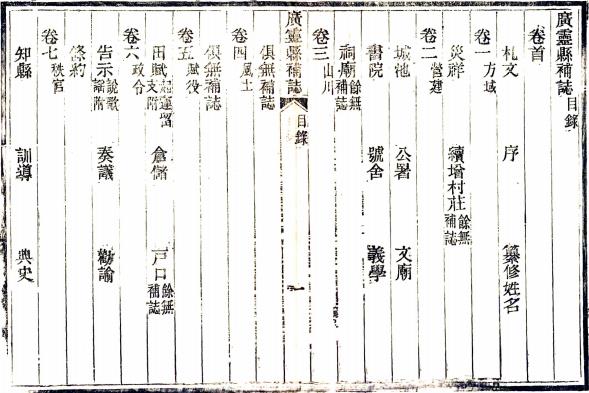 廣靈縣補誌目錄
卷首
札文 序 纂修姓名
卷一方域
災祥 續增村莊餘無補誌
卷二營建
城池 公署 文廟
書院 號舍 義學
祠廟餘無補誌
卷三山川
廣靈縣補誌 目錄 一
俱無補誌
卷四風土
俱無補誌
卷五賦役
田賦起運存留支附 倉儲 戶口餘無補誌
卷六政令
告示說歌謠附 奏議 勸諭
條約
卷七秩官
知縣 訓導 典史